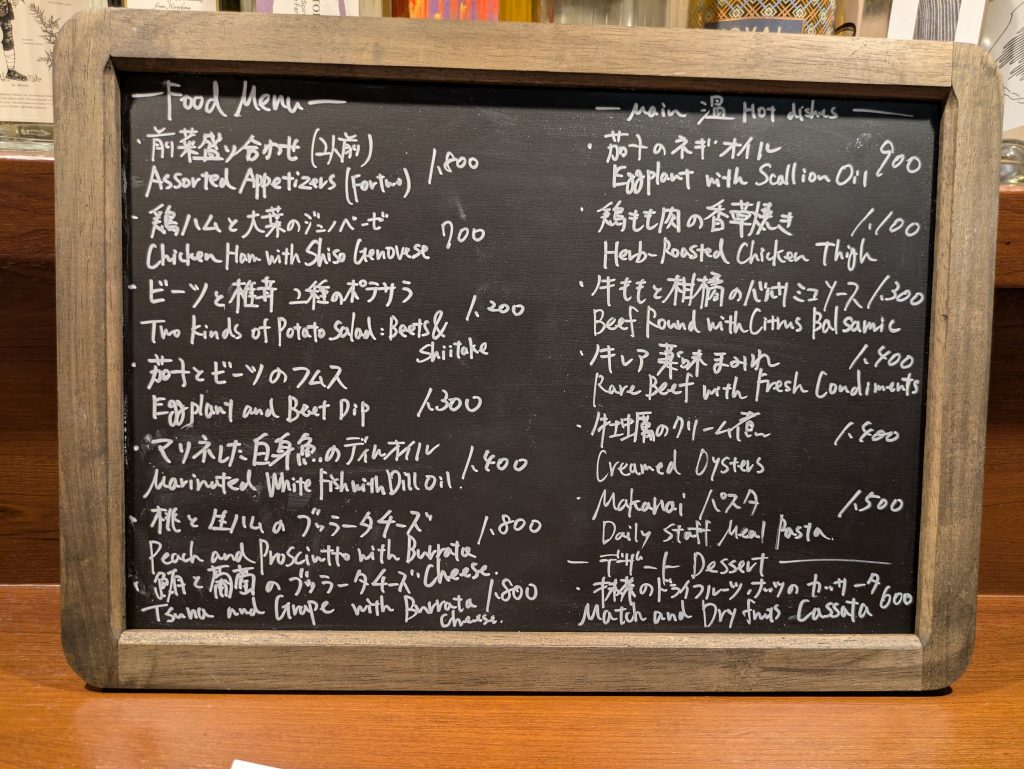 — Food Menu —
・前菜盛り合わせ (2人前)
1.800
Assorted Appetizers (For two)
・鶏ハムと大葉のジェノベーゼ
700
Chicken Ham with Shiso Genovese
・ビーツと椎茸 2種のポテサラ
1.200
Two kinds of Potato Salad: Beets &
Shiitake
・茄子とビーツのフムス
Eggplant and Beet Dip
1.300
・マリネした白身魚のディルオイル
1.400
Marinated White Fish with Dill Oil
・桃と生ハムのブッラータチーズ
1.800
Peach and Prosciutto with Burrata
Cheese.
・鮪と葡萄のブッラータチーズ
1.800
Tsuna and Grape with Burrata
cheese.
— Main 温 Hot dishes —
・茄子のネギオイル
900
Eggplant with Scallion Oil
・鶏もも肉の香草焼き
1.100
Herb-Roasted Chicken Thigh
・牛ももと柑橘のバルサミコソース
1.300
Beef Round with Citrus Balsamic
・牛レア 薬味まみれ
1.400
Rare Beef with Fresh Condiments
・牡蠣のクリーム煮
1.400
Creamed Oysters
・Makanai パスタ
1.500
Daily Staff Meal Pasta.
— デザート Dessert —
・抹茶のドライフルーツ、ナッツのカッサータ
600
Match and Dry fruits Cassata